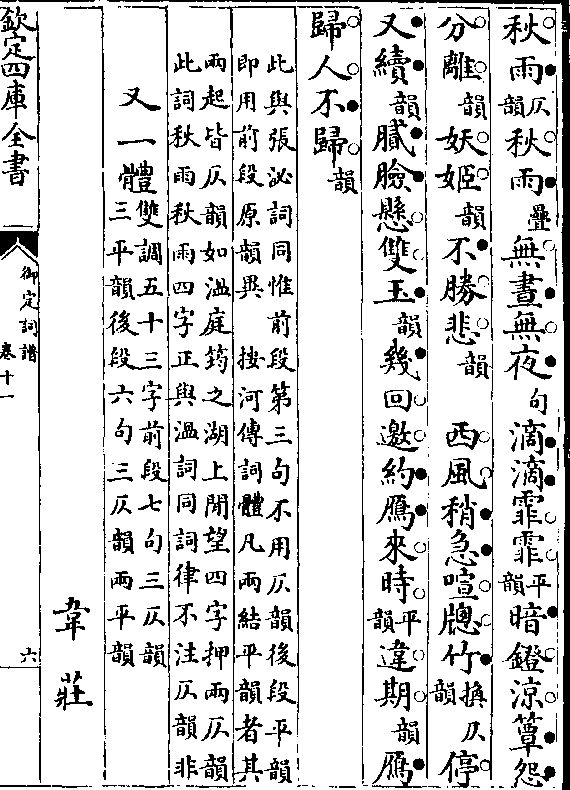 秋雨仄韻秋雨疊無晝無夜句滴滴霏霏平韻暗鐙涼簟怨
分離韻妖姬韻不勝悲韻　西風稍急喧牕竹換仄韻停
又續韻膩臉懸雙玉韻幾回邀約鴈來時平韻違期韻鴈
歸人不歸韻
此與張泌詞同惟前段第三句不用仄韻後段平韻
即用前段原韻異　按河傳詞體凡兩結平韻者其
兩起皆仄韻如溫庭筠之湖上閒望四字押兩仄韻
此詞秋雨秋雨四字正與溫詞同詞律不注仄韻非
又一體雙調五十三字前段七句三仄韻
三平韻後段六句三仄韻兩平韻
韋莊
欽定四庫全書
御定詞譜
卷十一
六